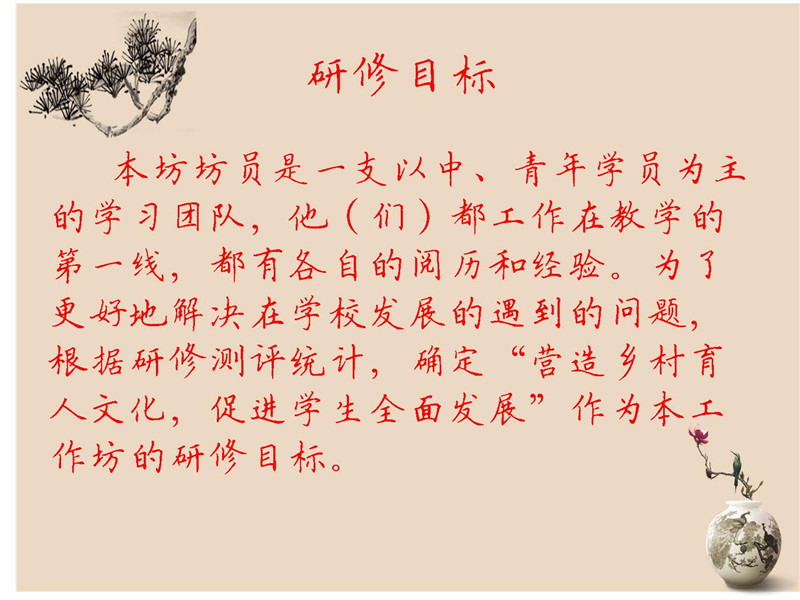 研修目标
本坊坊员是一支以中、青年学员为主
的学习团队，他（们）都工作在教学的
第一线，都有各自的阅历和经验。为了
更好地解决在学校发展的遇到的问题，
根据研修测评统计，确定“营造乡村育
人文化，促进学生全面发展”作为本工
作坊的研修目标。